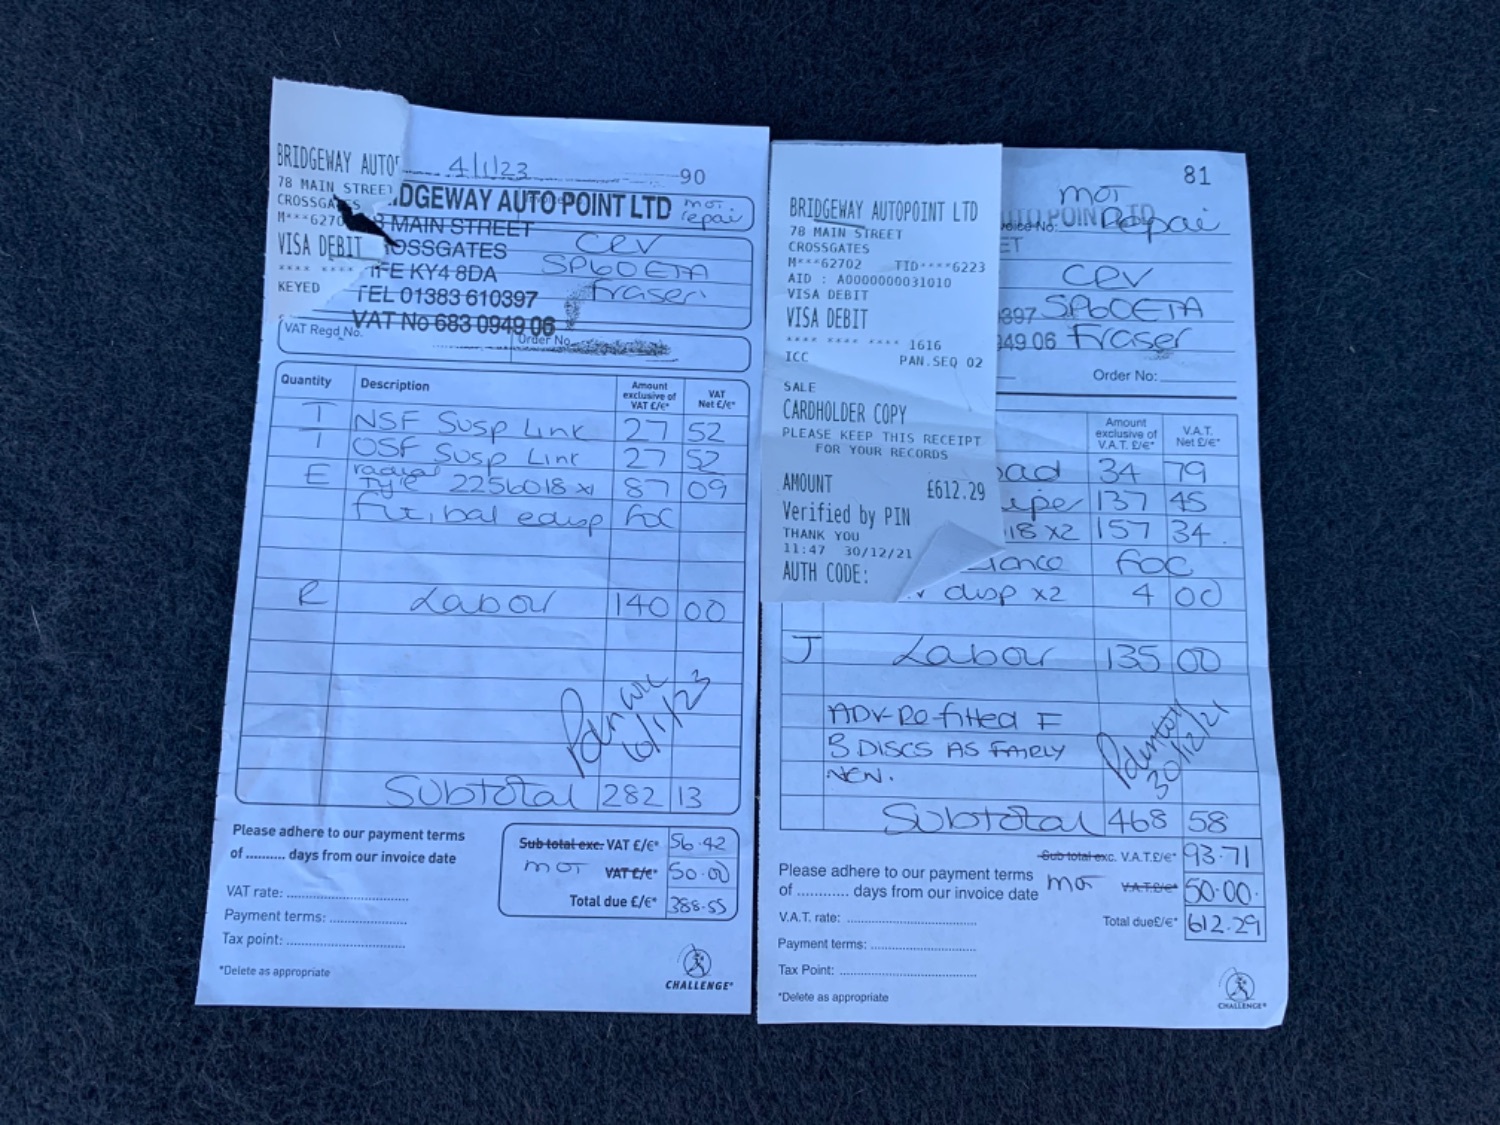 BRIDGEWAY AUTO
78 MAIN STREET
CROSSGATES
M***6270
VISA DEBIT
**** ****
KEYED
4/1/23
90
DGEWAY AUTO POINT LTD
MOT
repair
MAIN STREET
OSSGATES
FE KY4 8DA
TEL 01383 610397
VAT No 683 0949 06
CRV
SP60ETA
Fraser
VAT Regd No.
Order No.
Quantity Description Amount exclusive of VAT £/€* VAT Net £/€*
T NSF Susp Link 27 52
T OSF Susp Link 27 52
E radial Tyre 2256018 x1 87 09
Fit, bal & disp FOC
R Labour 140 00
6/1/23
Subtotal 282 13
Please adhere to our payment terms
of .......... days from our invoice date
Sub total exc. VAT £/€* 56.42
MOT VAT £/€* 50.00
Total due £/€* 388.55
VAT rate:
Payment terms:
Tax point:
*Delete as appropriate
CHALLENGE®
BRIDGEWAY AUTOPOINT LTD
78 MAIN STREET
CROSSGATES
M***62702 TID****6223
AID : A0000000031010
VISA DEBIT
VISA DEBIT
**** **** **** 1616
ICC PAN.SEQ 02
SALE
CARDHOLDER COPY
PLEASE KEEP THIS RECEIPT
FOR YOUR RECORDS
AMOUNT £612.29
Verified by PIN
THANK YOU
11:47 30/12/21
AUTH CODE:
81
MOT
Repair
UTO POINT LTD
voice No:
ET
CRV
397 SP60ETA
949 06 Fraser
Order No:
Amount exclusive of V.A.T. £/€* V.A.T. Net £/€*
pad 34 79
iper 137 45
18 x2 157 34
lance FOC
disp x2 4 00
J Labour 135 00
ADV-Re-fitted F
B DISCS AS FAIRLY
NEW.
30/12/21
Subtotal 468 58
Sub total exc. V.A.T.£/€* 93.71
Please adhere to our payment terms
of ............ days from our invoice date
MOT V.A.T.£/€* 50.00
V.A.T. rate:
Total due£/€* 612.29
Payment terms:
Tax Point:
*Delete as appropriate
CHALLENGE®